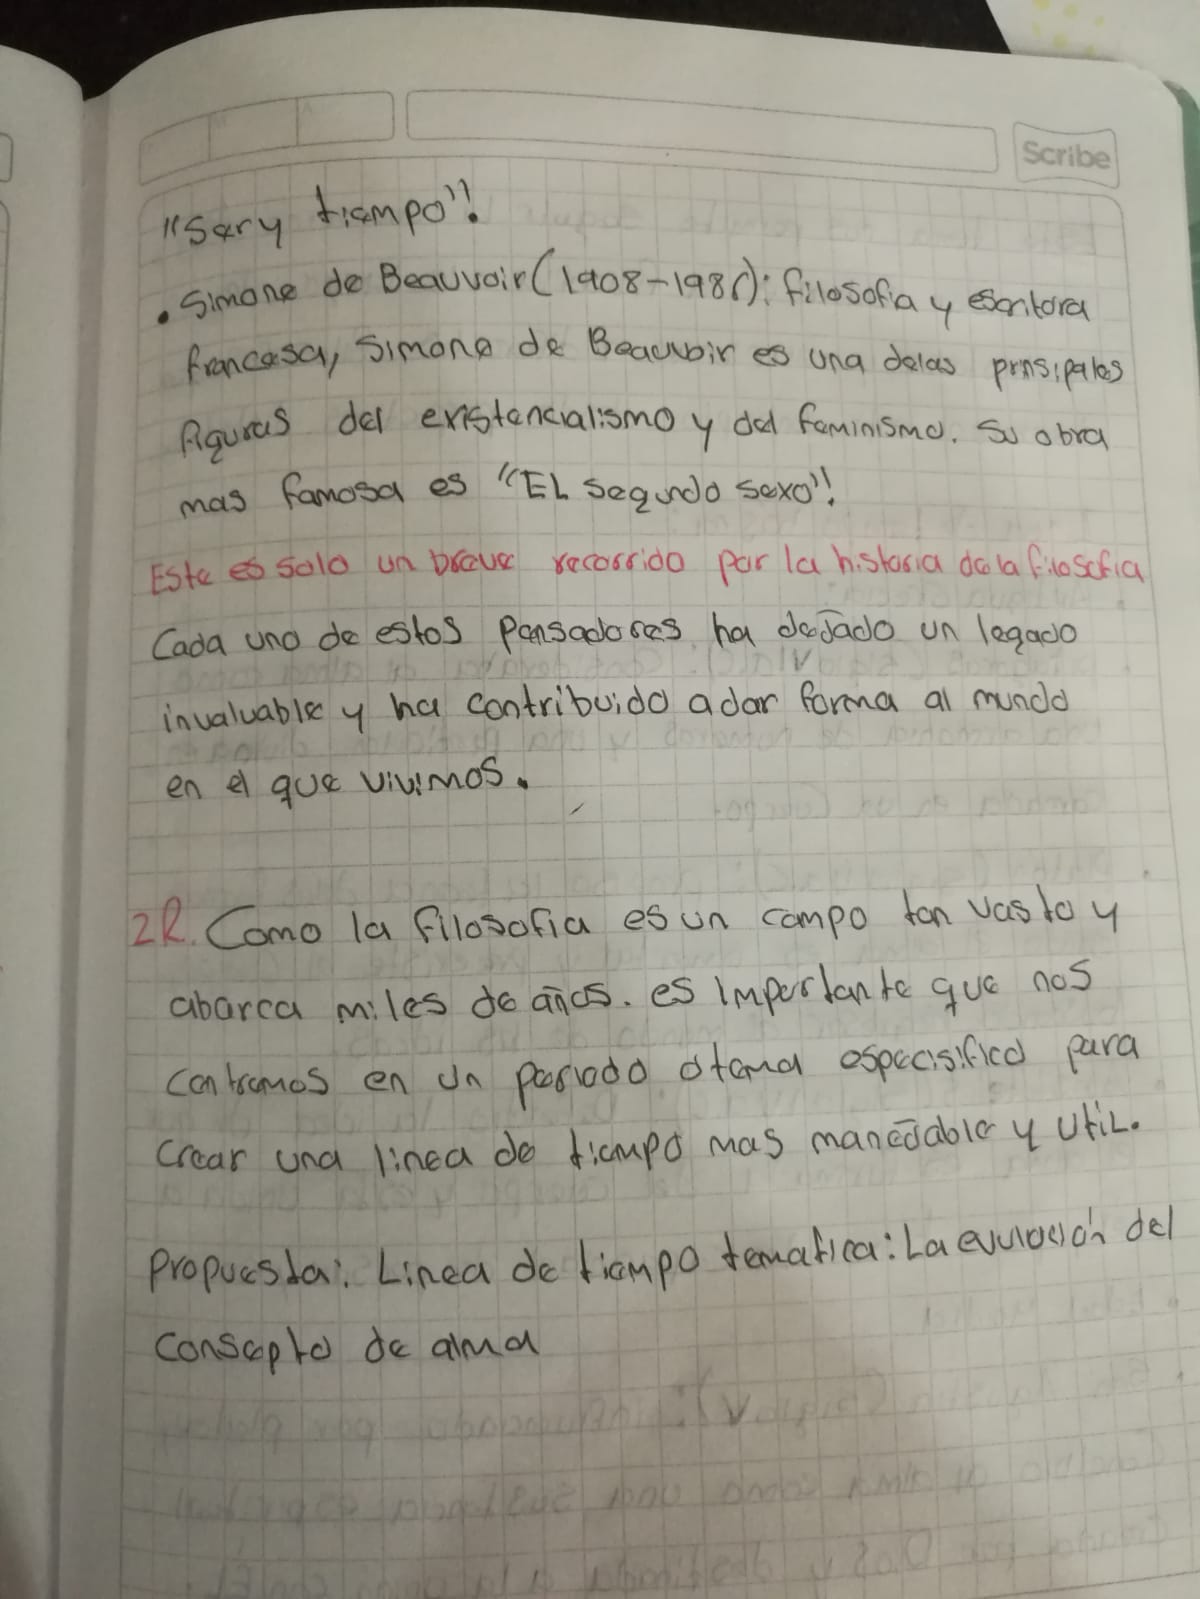 Scribe
"Ser y tiempo".
• Simone de Beauvoir (1908-1986): filosofia y escritora
francesa, Simone de Beauvoir es una delas prinsipales
figuras del existencialismo y del feminismo. Su obra
mas famosa es "EL segundo sexo".
Este es solo un breve recorrido por la historia de la filosofia
Cada uno de estos pensadores ha dejado un legado
invaluable y ha contribuido a dar forma al mundo
en el que vivimos.
2R. Como la filosofia es un campo tan vasto y
abarca miles de años. es importante que nos
centremos en un periodo o tema especisifico para
crear una linea de tiempo mas manejable y util.
propuesta: Linea de tiempo tematica: La evolución del
consepto de alma